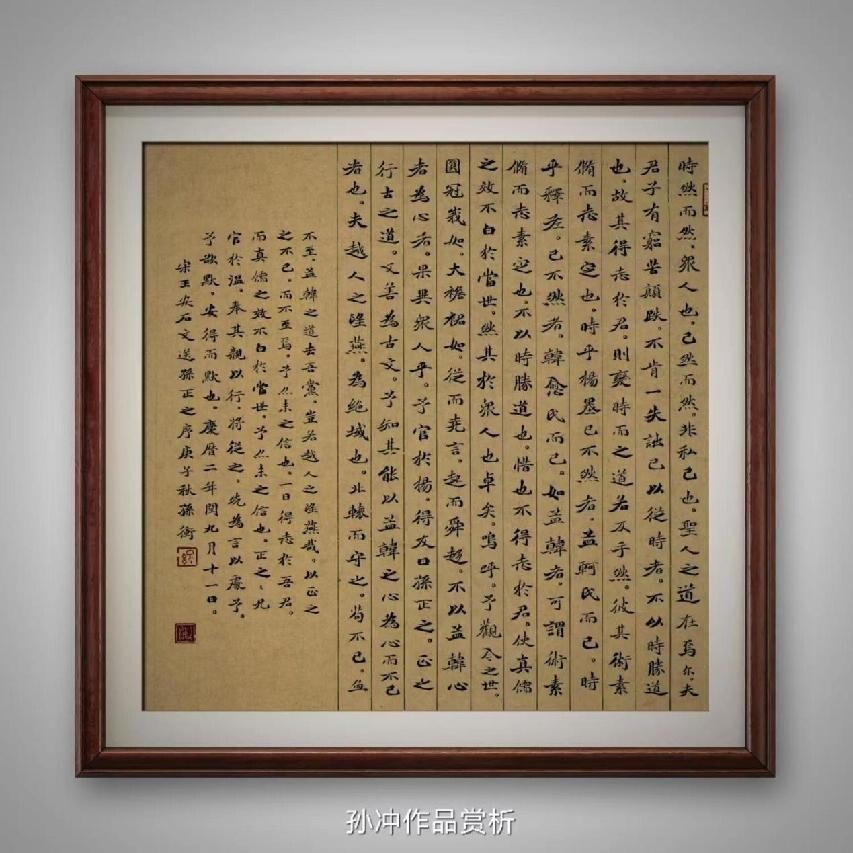 時然而然。眾人也。己然而然。非私己也。聖人之道在焉尔。夫
君子有窮苦顛跌。不肯一失詘己以從時者。不以時勝道
也。故其得志於君。則變時而之道若反手然。彼其術素
脩而志素定也。時乎楊墨己不然者。孟軻氏而已。時
乎釋老。己不然者。韓愈氏而已。如孟韓者。可謂術素
脩而志素定也。不以時勝道也。惜也不得志於君。使真儒
之效不白於當世。然其於眾人也卓矣。嗚呼。予觀今之世。
圓冠峩如。大襜裙如。從而堯言。起而舜趨。不以孟韓心
者為心者。果異眾人乎。予官於楊。得友曰孫正之。正之
行古之道。又善為古文。予知其能以孟韓之心為心而不已
者也。夫越人之望燕。為絕域也。北轅而守之。苟不已。無
不至。孟韓之道去吾黨。豈若越人之望燕哉。以正之
之不已。而不至焉。予亦未之信也。一日得志於吾君。
而真儒之效不白於當世。予亦未之信也。正之之兄
官於温。奉其親以行。將從之。先為言以處予。
予欲默。安得而默也。慶曆二年閏九月十一日。
宋王安石文送孫正之序庚子秋孫衝
孙冲作品赏析